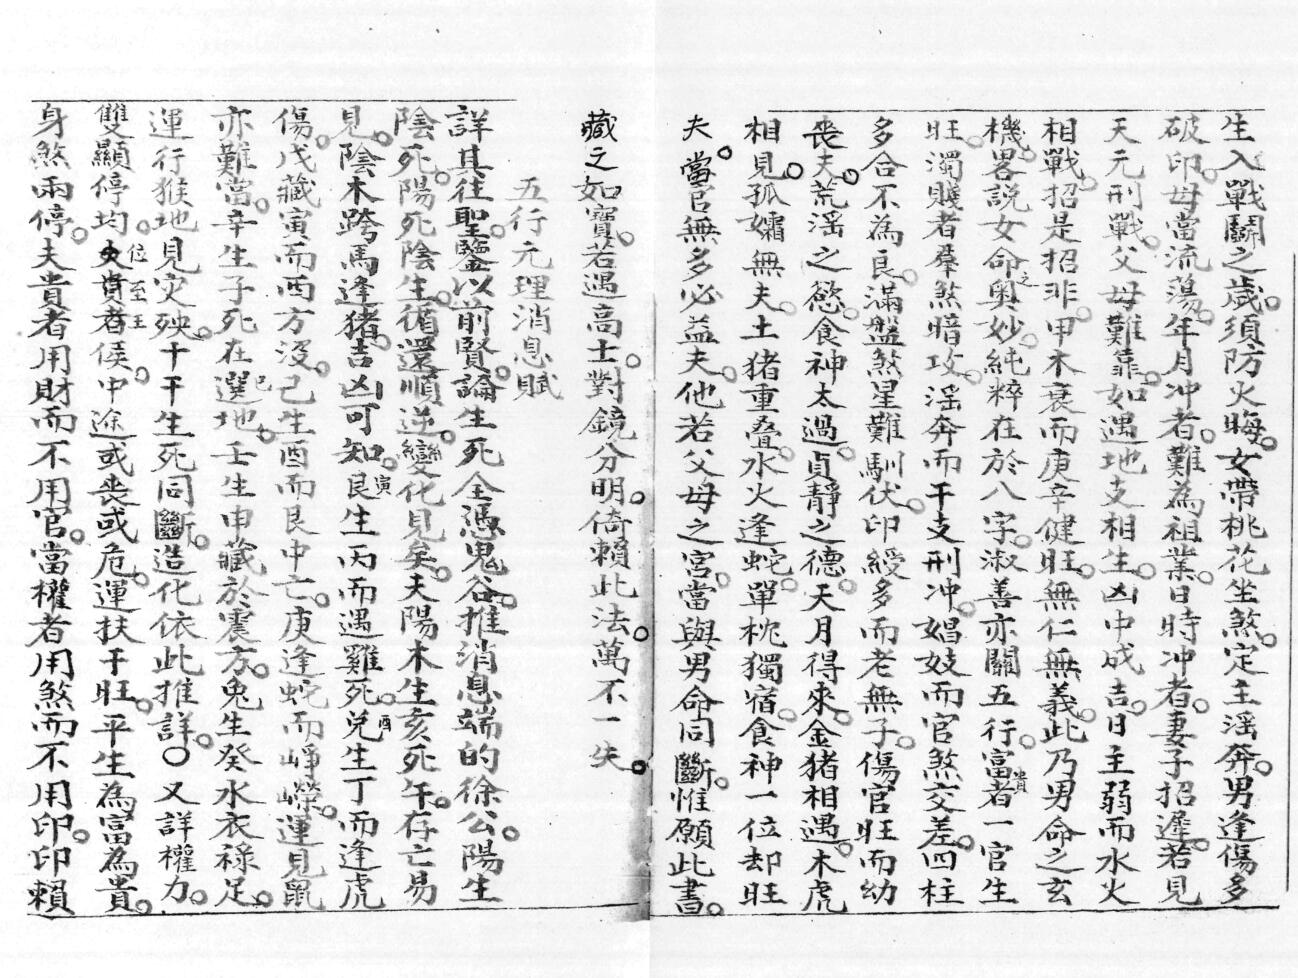 生入戰鬭之歲。須防火晦。女帶桃花坐煞。定主滛奔。男逢傷多
破印。母當流蕩。年月冲者。難為祖業。日時冲者。妻子招遲。若見
天元刑戰。父母難靠。如遇地支相生。凶中成吉。日主弱而水火
相戰。招是招非。甲木衰而庚辛健旺。無仁無義。此乃男命之玄
機。畧説女命之奥妙。純粹在於八字。淑善亦關五行。富貴者一官生
旺。濁賤者羣煞暗攻。滛奔而干支刑冲。娼妓而官煞交差。四柱
多合不為良。滿盤煞星難馴伏。印綬多而老無子。傷官旺而幼
丧夫。荒滛之慾。食神太過。貞靜之德。天月得來。金猪相遇木虎
相見。孤孀無夫。土猪重叠。水火逢蛇。單枕獨宿。食神一位却旺
夫。當官無多必益夫。他若父母之宮。當與男命同斷。惟願此書。
藏之如寶。若遇高士。對鏡分明。倚賴此法。萬不一失。
五行元理消息賦
詳其往聖。鑒以前賢。論生死全憑鬼谷。推消息端的徐公。陽生
陰死。陽死陰生。循還順逆。變化見矣。夫陽木生亥死午。存亡易
見。陰木跨馬逢猪。吉凶可知。艮寅生丙而遇雞死。兌酉生丁而逢虎
傷。戊藏寅而西方沒。己生酉而艮中亡。庚逢蛇而崢嶸。運見鼠
亦難當。辛生子死在選巳地。壬生申藏於震方。兔生癸水衣祿足。
運行猴地見灾殃。十干生死同斷。造化依此推詳。○又詳權力。
雙顯停均。位至王侯。中途或丧或危。運扶干旺。平生為富為貴。
身煞兩停。夫貴者用財而不用官。當權者用煞而不用印。印賴